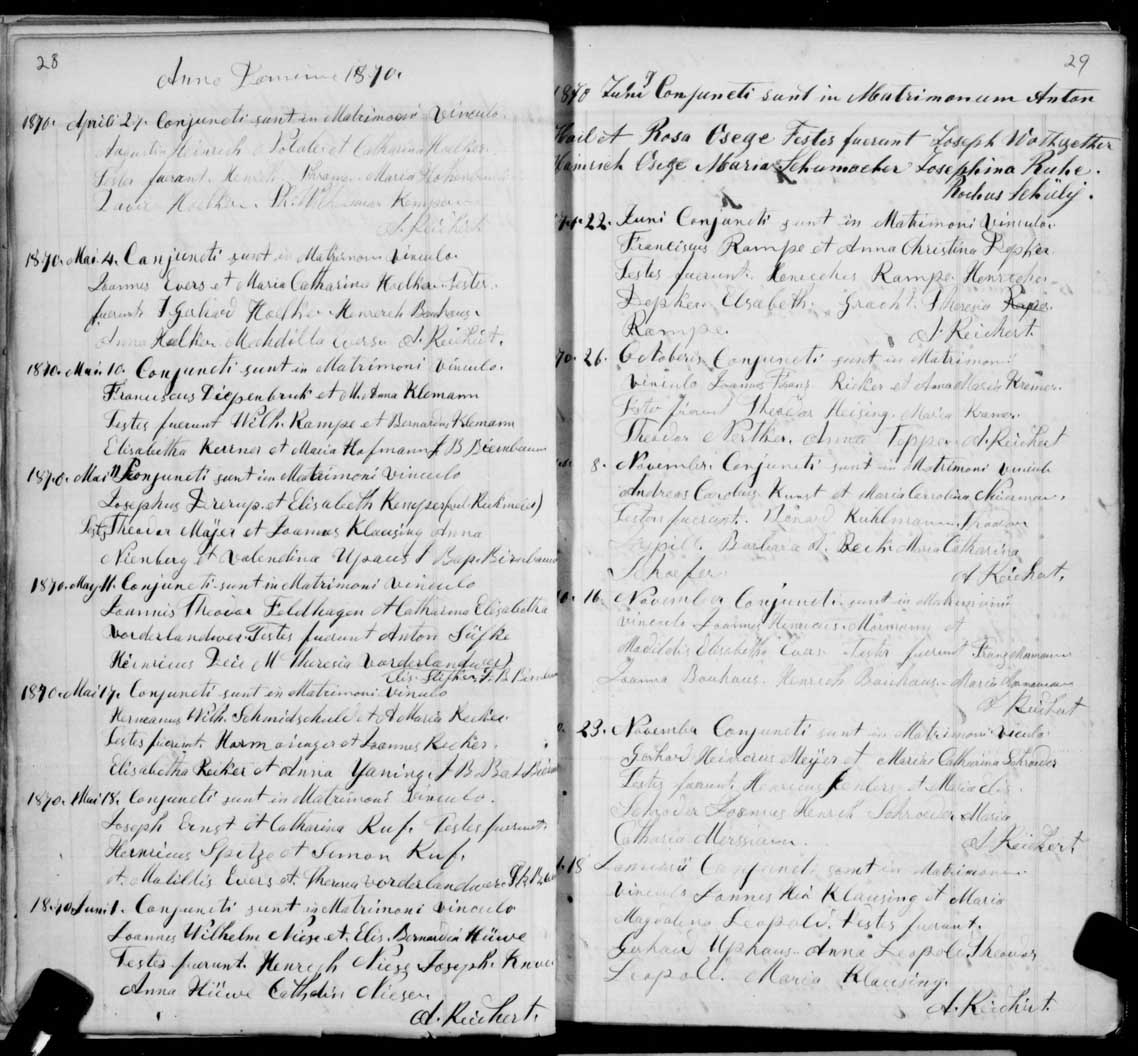 28
Anno Domini 1870.
1870. Aprili 27. Conjuncti sunt in Matrimoni Vinculo
Heinrich et Catharina Hoelker.
Testes fuerunt Henrich Maria
Hoelker. Kemper
A. Reichert
1870. Mai 4. Conjuncti sunt in Matrimoni vinculo.
Joannes Evers et Maria Catharina Hoelker Testes
fuerunt Gerhard Hoelker Henrich Bauhaus.
Anna Hoelker Evers A. Reichert.
1870. Mai. 10. Conjuncti sunt in Matrimoni vinculo.
Franciscus Diepenbrok et M. Anna Klemann
Testes fuerunt Wilh. Rampe et Bernardus Klemann
Elisabetha Kersner et Maria Hofmann J B Biernbaum
1870. Mai 11 Conjuncti sunt in Matrimoni vinculo
Josephus Drerup et Elisabeth Kemper
Testes Theodor Mäjer et Joannes Klausing Anna
Nienberg et Valendina Upaus J Bap. Biernbaum
1870. May 11. Conjuncti sunt in Matrimoni vinculo
Joannis Theodor Feldhagen et Catharina Elisabetha
Vorderlandwer. Testes fuerunt Anton Süfke
Heinricus Deie M Theresia Vorderlandwer
Elis. J. B. Biernbaum
1870. Mai 17. Conjuncti sunt in Matrimoni vinculo
Hermanus Wilh. Schmidschulde et A Maria Recker.
Testes fuerunt. Harm et Joannes Recker.
Elisabetha Recker et Anna Yaning. J B
1870. Mai 18. Conjuncti sunt in Matrimoni Vinculo.
Joseph Ernst et Catharina Ruf. Testes fuerunt.
Heinricus Spitze et Simon Ruf.
et Matildis Evers et. Theresa Vorderlandwer
1870. Juni 1. Conjuncti sunt in Matrimoni vinculo
Joannes Wilhelm Niese et. Elis. Bernardin Hüwe
Testes fuerunt. Henrich Niese Joseph
Anna Hüwe Catharin Niesen
A. Reichert.
29
1870 Juni 9 Conjuncti sunt in Matrimonum Anton
Hail et Rosa Osege Testes fuerunt Joseph Wothgether
Heinrich Osege Maria Schumacher Josephina Ruhe.
Rochus Schüly.
22. Juni Conjuncti sunt in Matrimoni vinculo
Franciscus Rampe et Anna Christina Depker
Testes fuerunt. Henricus Rampe Henricho
Depker Elsabeth. Gracht. Theresia
Rampe. A. Reichert.
70. 26. Octoberis Conjuncti sunt in Matrimoni
vinculo Joannes Franz Recker et Anna Maria Kremer.
Testes fuerunt Theodor Heising. Maria Kramer.
Theodor Nerther. Anna Toppe A. Reichert
8. November. Conjuncti sunt in Matrimoni vinculo
Andreas Carolus Kunst et Maria Carrolina Nieman.
Testes fuerunt. Bernard Kuhlmann.
Barbara et Maria Catharina
Schaefer A. Reichert.
16. November Conjuncti sunt in Matrimonii
vinculo Joannes Henricus Mormann et
Madildis Elisabeth Evers Testes fuerunt Franz
Joanna Bauhaus. Henrich Bauhaus. Maria
A Reichert
23. November Conjuncti sunt in Matrimoni vinculo
Gerhard Heinricus Meijer et Maria Catharina Schroder
Testes fuerunt Henricus et Maria Elis.
Schroder Joannes Henrich Schroeder Maria
Catharia Merssman. A. Reichert.
18 Januarii Conjuncti sunt in Matrimoni
Vinculo Joannes Hen Klausing et Maria
Magdalena Leopold. Testes fuerunt.
Gerhard Uphaus. Anna Leopold Theodor
Leopold. Maria Klausing.
A. Reichert.